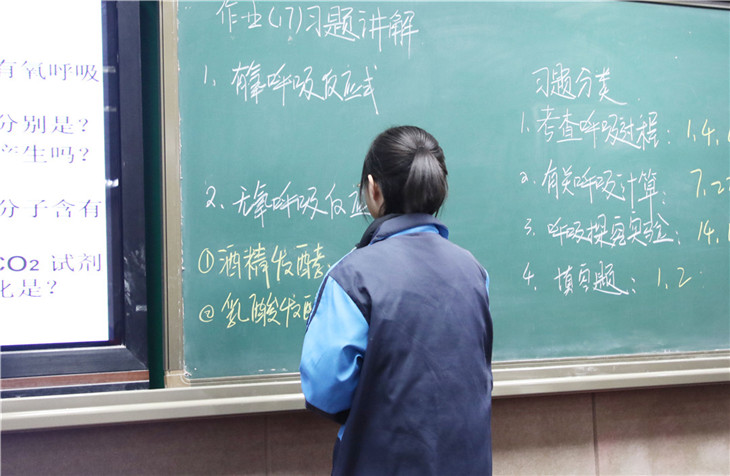 有氧呼吸
分别是？
产生吗？
分子含有
CO2 试剂
化是？
作业(17)习题讲解
1、有氧呼吸反应式
2、无氧呼吸反应
①酒精发酵
②乳酸发酵
习题分类
1、考查呼吸过程：1,4,
2、有关呼吸计算：7,2
3、呼吸探究实验：14,1
4、填空题：1,2